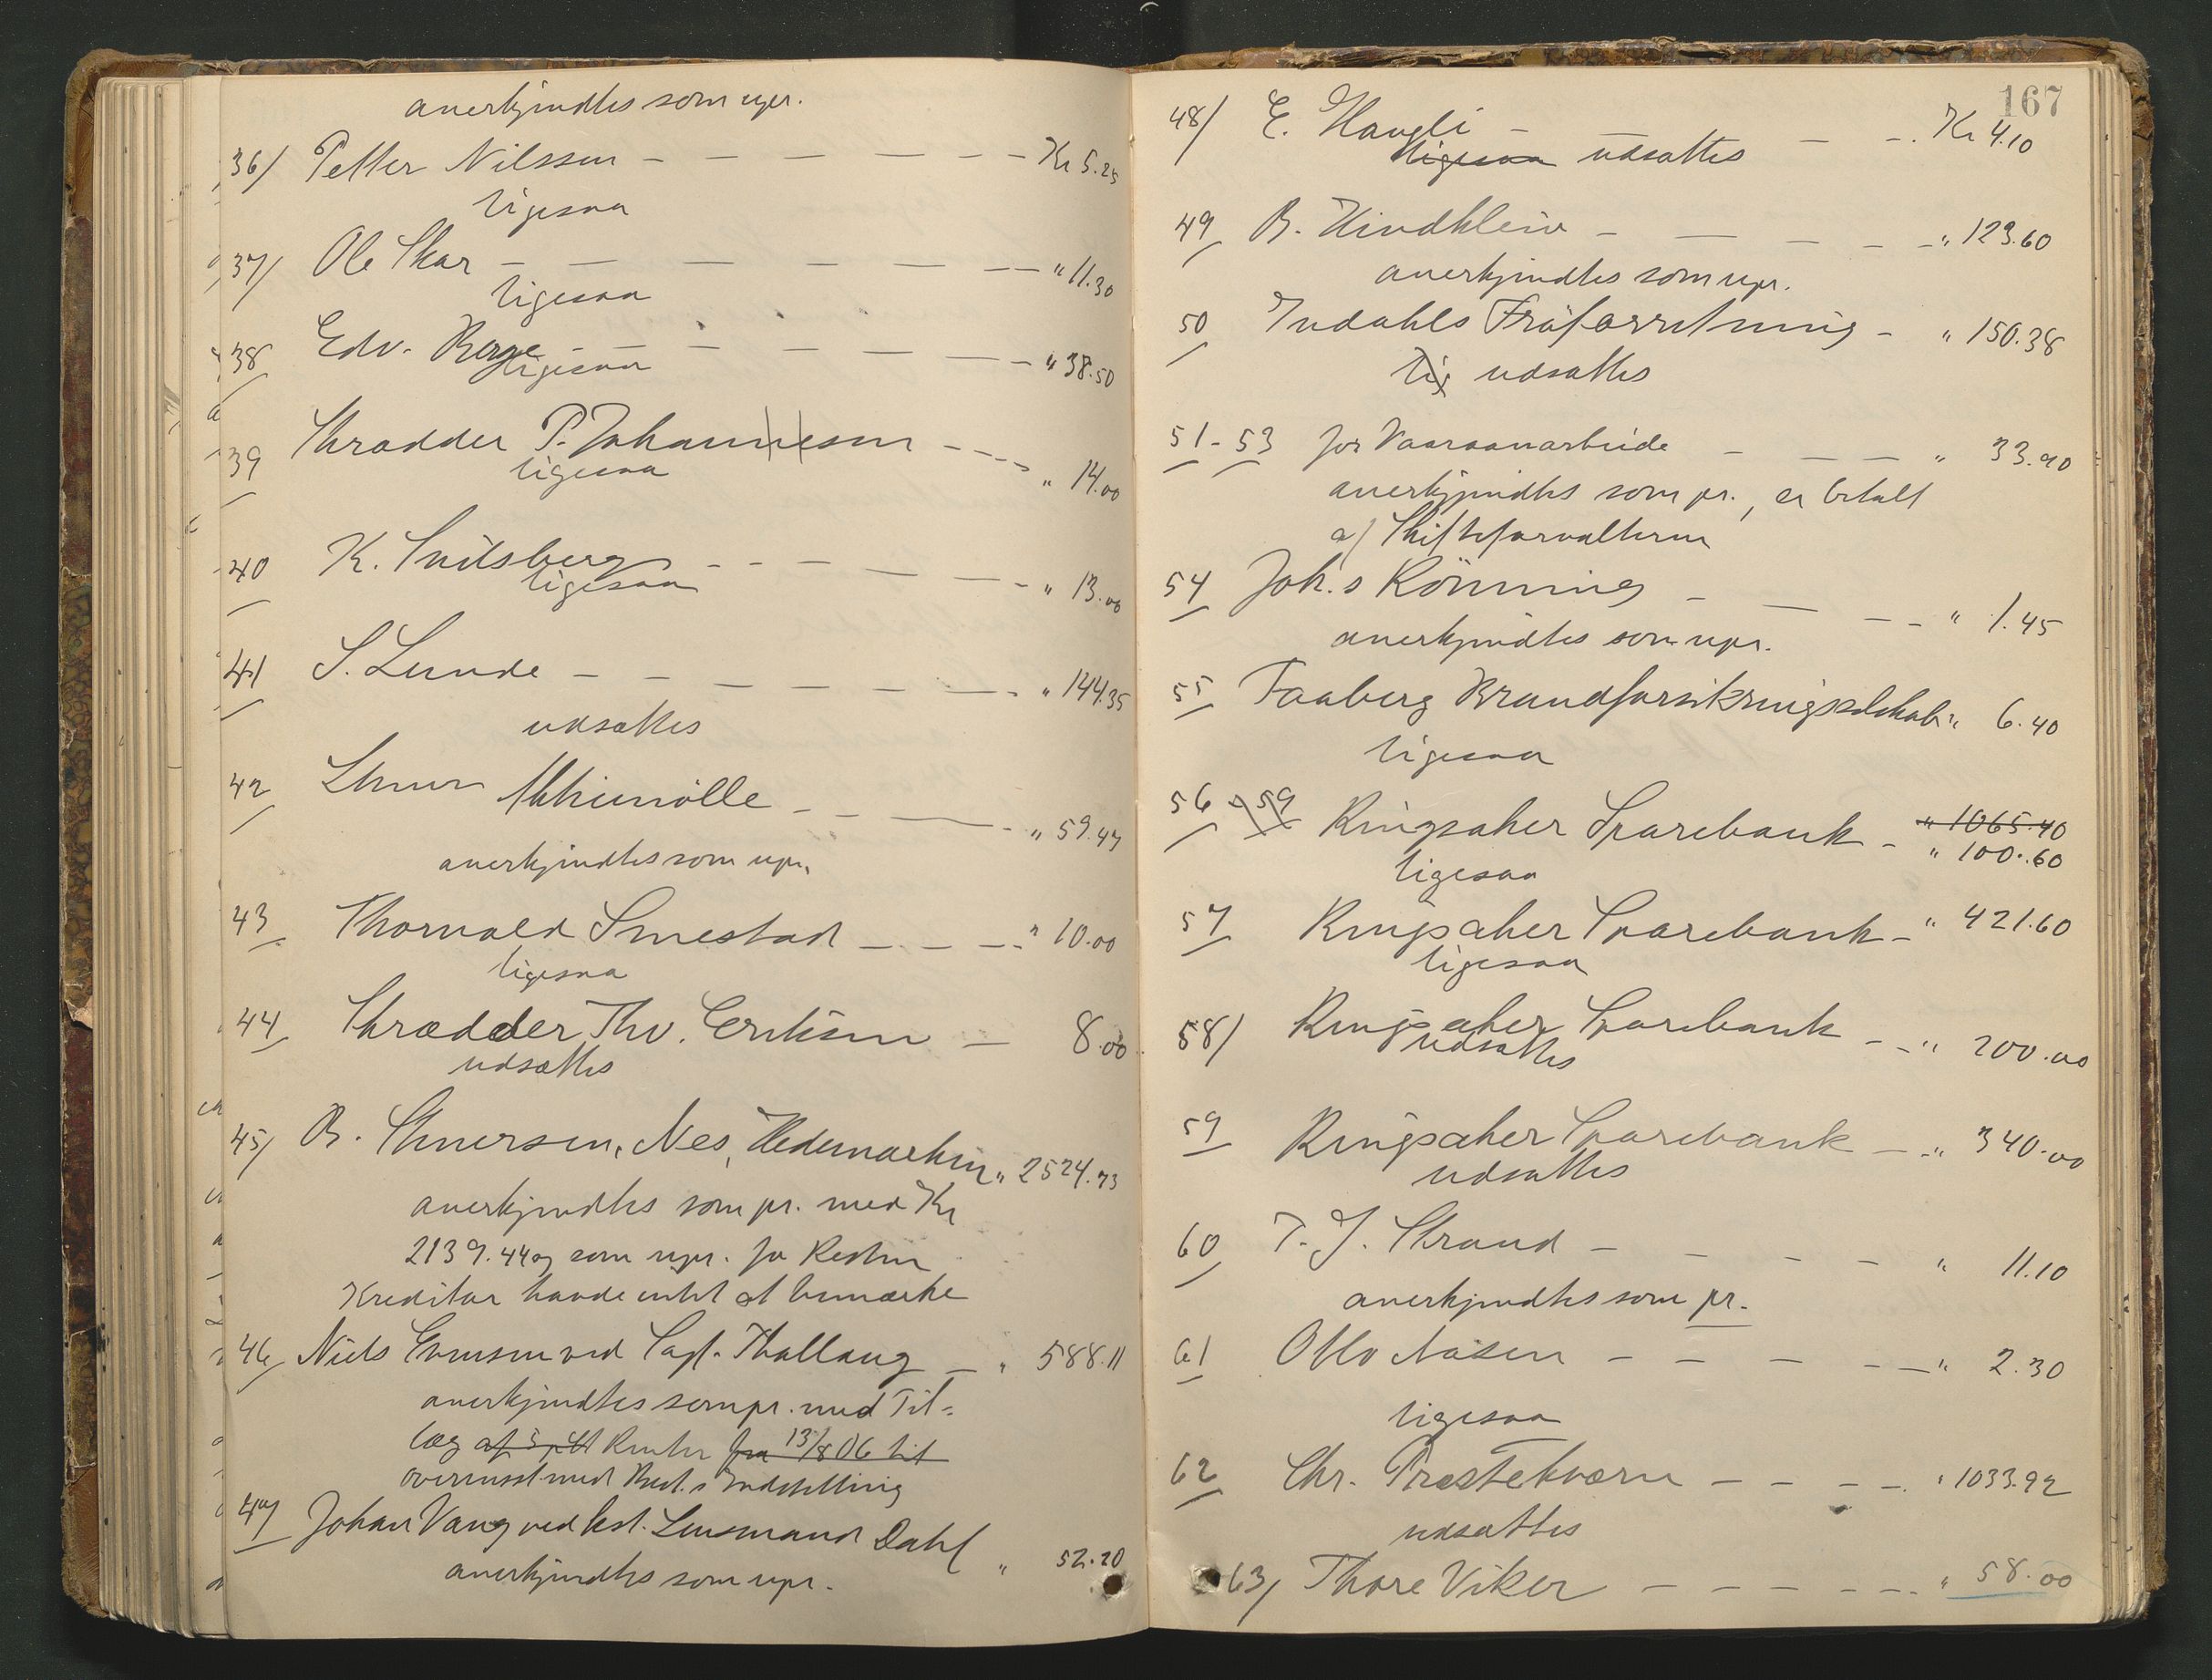 anerkjendtes som upr.
36/ Petter Nilssen - - - - - - Kr 5.25
ligesaa
37/ Ole Skar - - - - - - - " 11.30
ligesaa
38 Edv. Berge - - - - - - " 38.50
ligesaa
39 Skrædder P. Johannesen - - - - " 14.00
ligesaa
40 K. Snilsberg - - - - - - " 13.00
ligesaa
41 S. Lunde - - - - - - - " 144.35
udsattes
42 Aktiemölle - - - - " 59.47
anerkjendtes som upr.
43 Thorvald Smestad - - - " 10.00
ligesaa
44 Skrædder Thv. Eriksen - 8.00
udsattes
45/ B. Skuersen, Nes, Hedemarken " 2524.73
anerkjendtes som pr. med Kr
2139.44 og som upr. for Resten
Kreditor havde intet at bemærke
46 Niels Evensen ved Sagf. Thallaug - " 588.11
anerkjendtes som pr. med Til=
læg af 5 pCt Renter fra 13/8 06 til
overensst. med Best.s Indstilling
47 Johan Vang ved kst. Lensmand Dahl " 52.20
anerkjendtes som upr.
167
48/ E. Haugli - - - - Kr 4.10
ligesaa udsattes
49 B. Kindhlein - - - - - " 123.60
anerkjendtes som upr.
50 Indahls Fröforretning - " 150.38
lig udsattes
51-53 for Vaaraanarbeide - - - - " 33.90
anerkjendtes som pr., er betalt
af Skifteforvalteren
54 Joh.s Rönning - - - - " 1.45
anerkjendtes som upr.
55 Faaberg Brandforsikringsselskab " 6.40
ligesaa
56 - 59 Ringsaker Sparebank - " 1065.40
" 100.60
ligesaa
57 Ringsaker Sparebank - " 421.60
ligesaa
58/ Ringsaker Sparebank - - " 200.00
udsattes
59 Ringsaker Sparebank - - " 340.00
udsattes
60 T. J. Strand - - - - " 11.10
anerkjendtes som pr.
61 Otto Aasen - - - - - " 2.30
ligesaa
62 Chr. Prestekværn - - - - " 1033.92
udsattes
63/ Thore Viker - - - - - - " 58.00